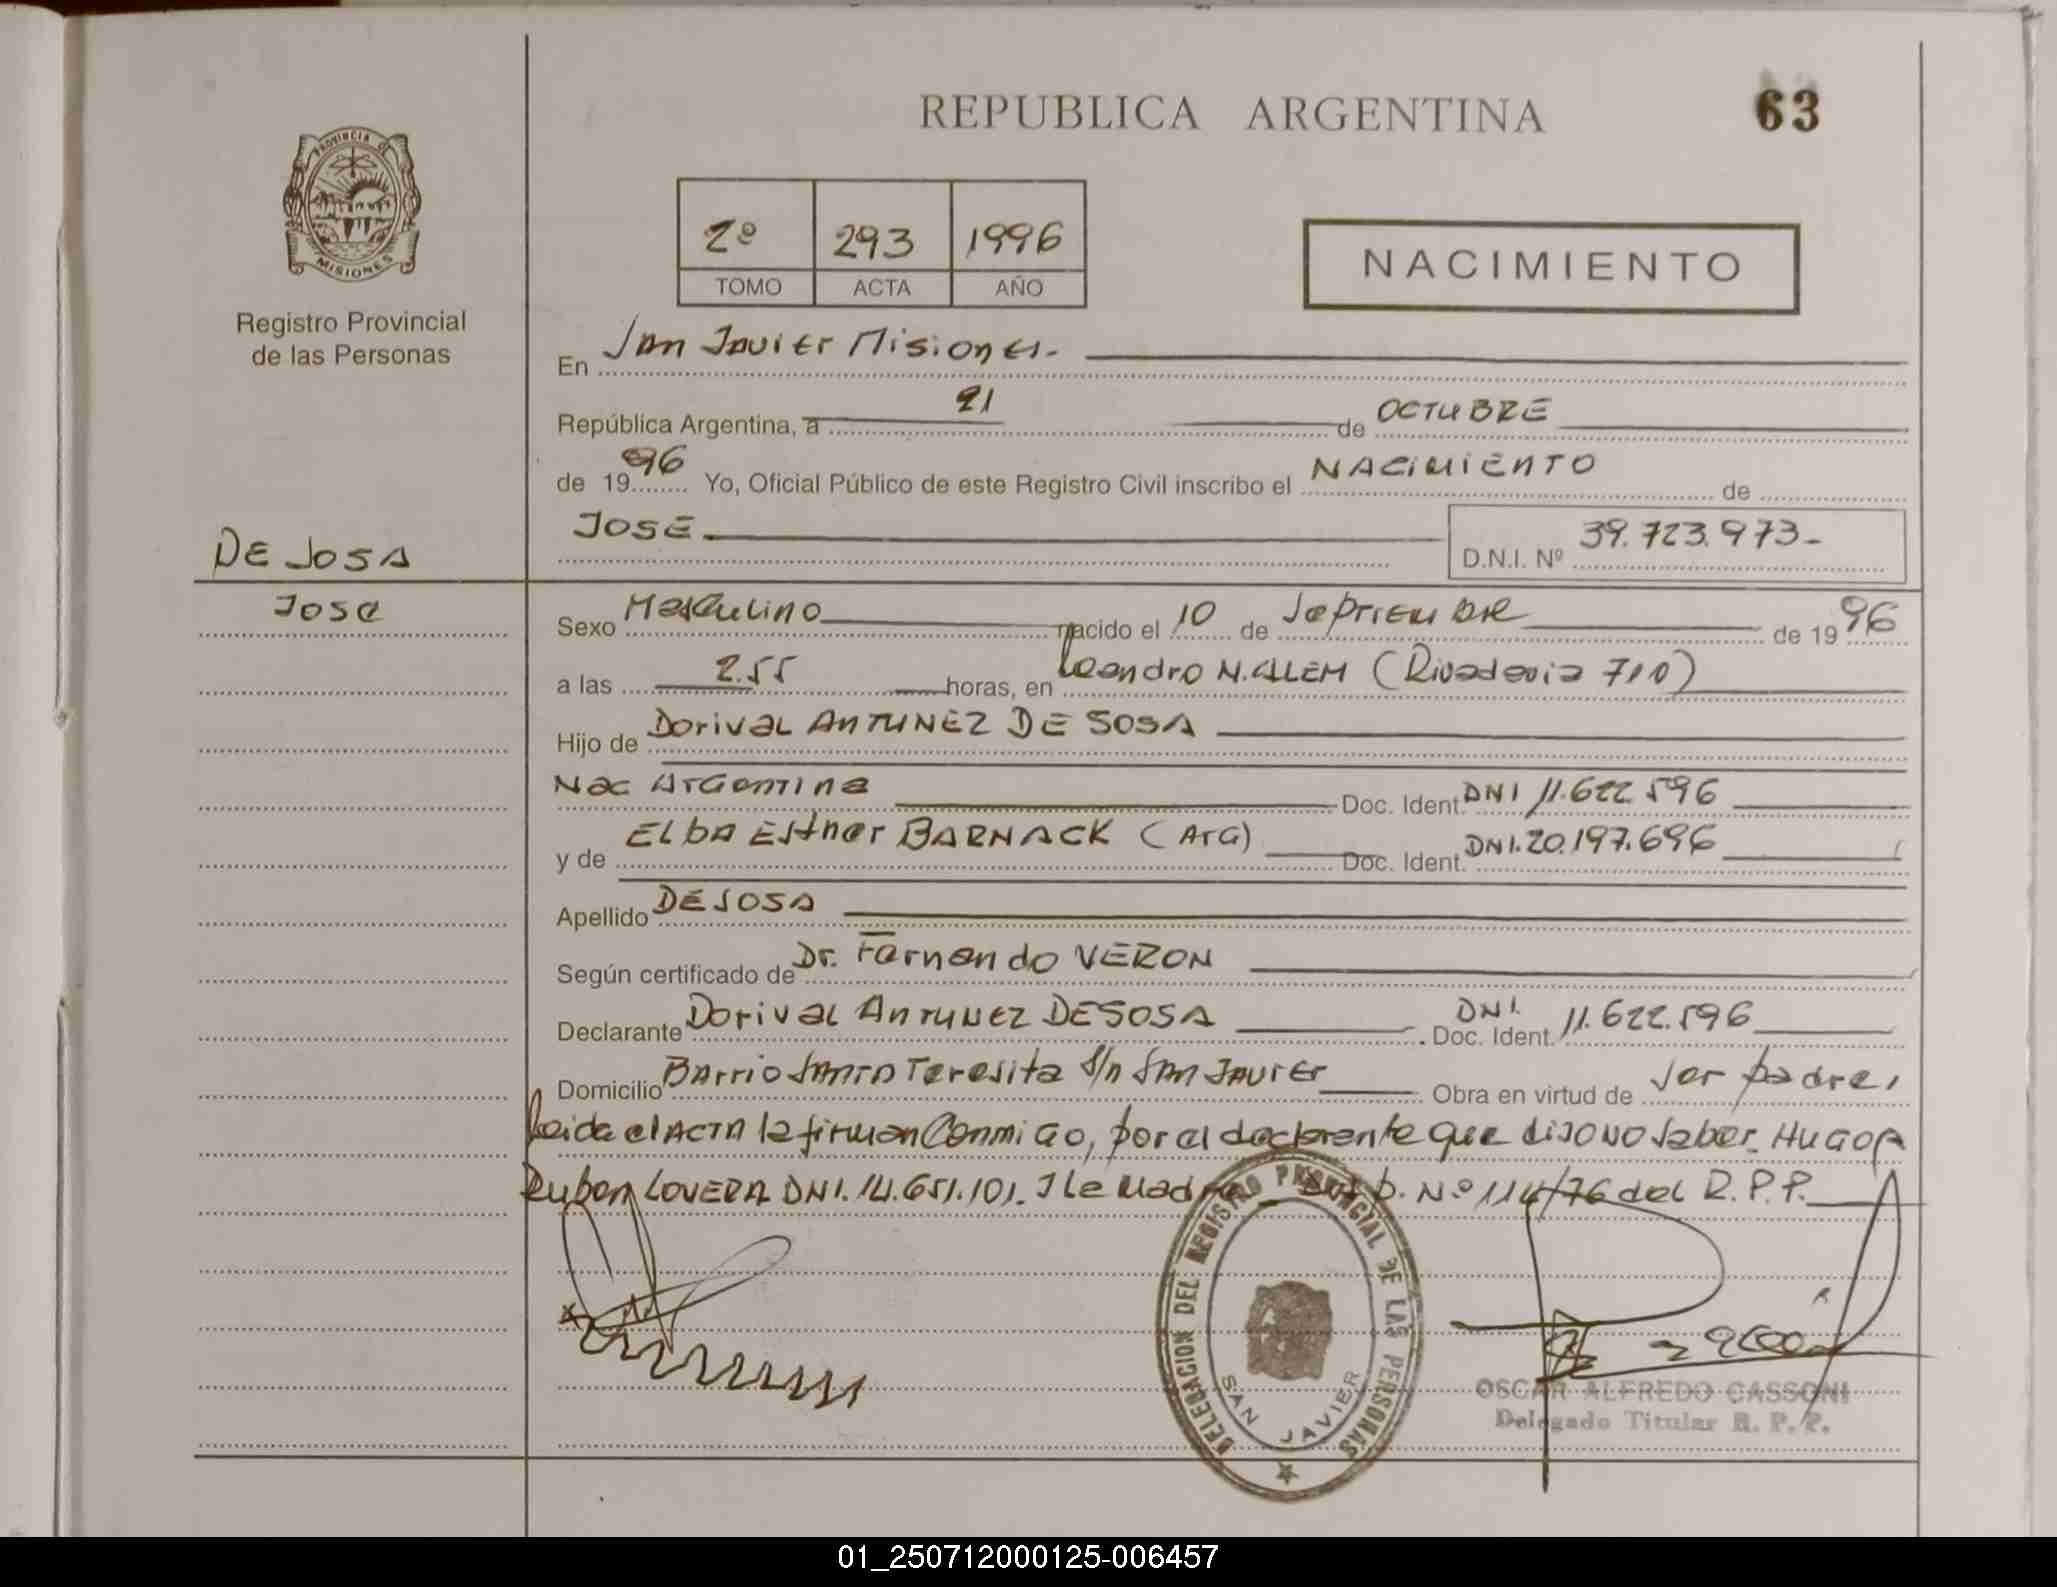 REPUBLICA ARGENTINA
63
PROVINCIA DE MISIONES
Registro Provincial
de las Personas
2º 293 1996
TOMO ACTA AÑO
NACIMIENTO
En San Javier Misiones.-
República Argentina, a 21 de OCTUBRE
de 1996 Yo, Oficial Público de este Registro Civil inscribo el NACIMIENTO de
JOSE D.N.I. Nº 39.723.973-
DE SOSA
Jose
Sexo Masculino nacido el 10 de Septiembre de 1996
a las 2.55 horas, en Leandro N. ALEM (Rivadavia 710)
Hijo de Dorival ANTUNEZ DE SOSA
Nac Argentina Doc. Ident. DNI 11.622.596
y de Elba Esther BARNACK (Arg) Doc. Ident. DNI.20.197.696
Apellido DE SOSA
Según certificado de Dr. Fernando VERON
Declarante Dorival Antunez DE SOSA Doc. Ident. DNI. 11.622.596
Domicilio Barrio Santa Teresita s/n San Javier Obra en virtud de ser padre,
Leida el ACTA la firman Conmigo, por el declarante que dijo no saber, HUGO
Ruben LOVERA DNI. 14.651.101. Nº 114/76 del R.P.P.
DELEGACION DEL REGISTRO PROVINCIAL DE LAS PERSONAS
SAN JAVIER
OSCAR ALFREDO CASSONI
Delegado Titular R. P. P.
01_250712000125-006457